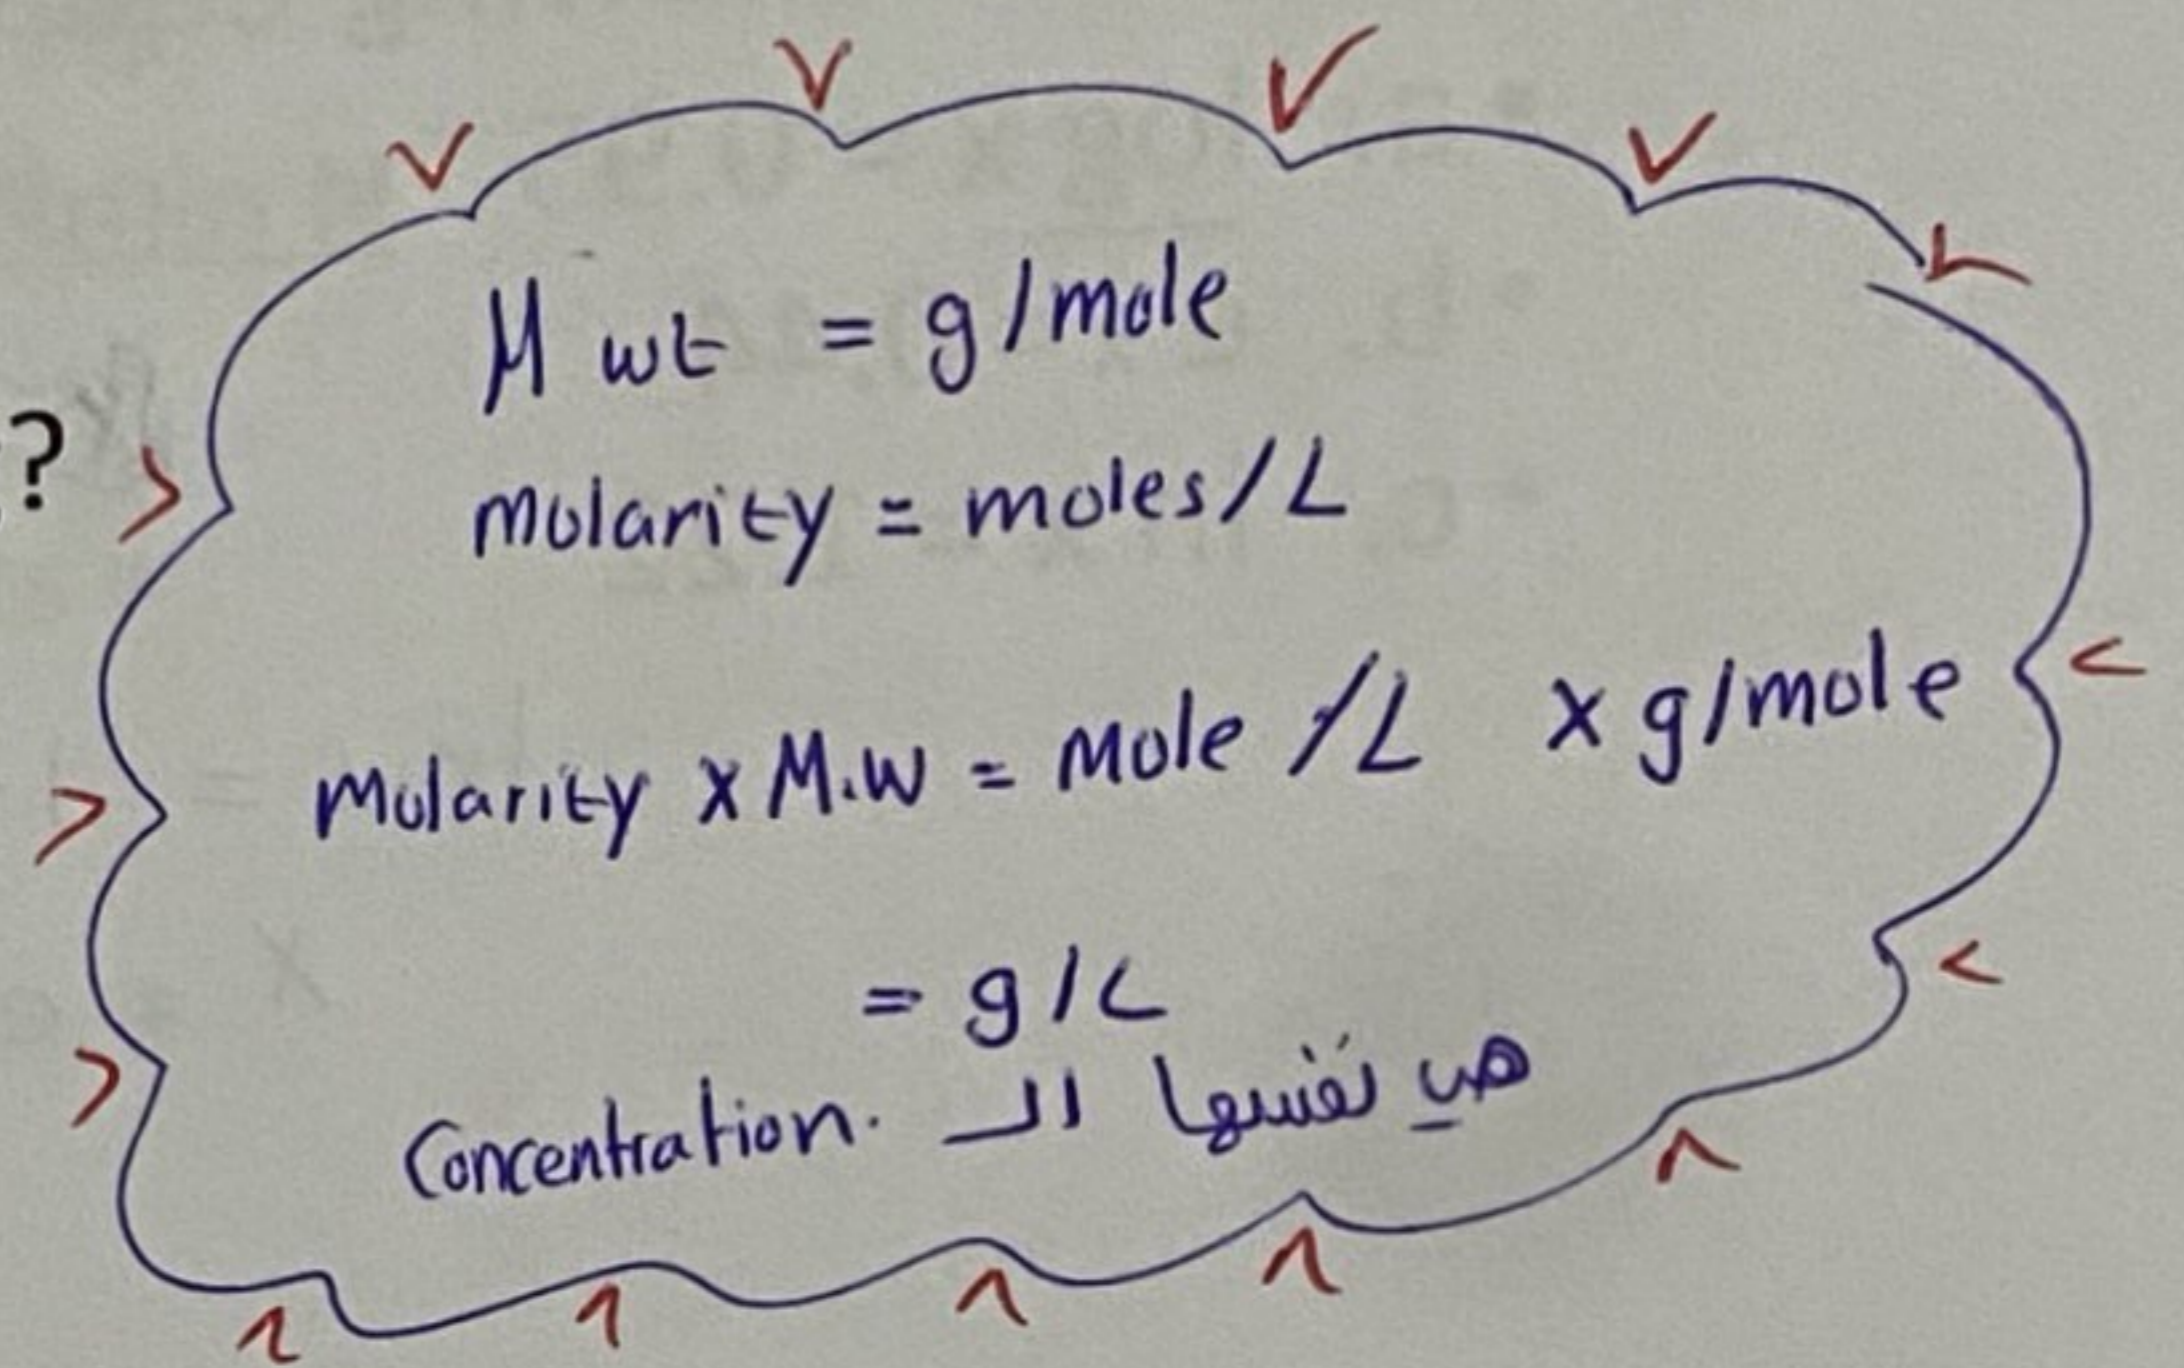 M wt = g/mole
?
molarity = moles/L
Molarity x M.W = Mole /L x g/mole
= g/L
هي نفسها الـ Concentration.